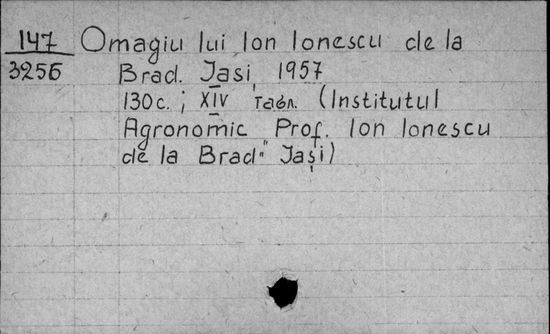 147 Omagiu lui Ion Ionescu de la
3256 Brad. Iași, 1957
130 с.; XIV табл. (Institutul
Agronomic "Prof. Ion Ionescu
de la Brad" Iași)